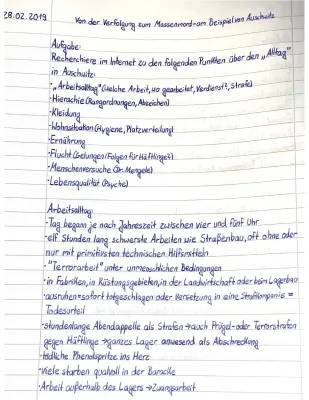 28.02.2019
Von der Verfolgung zum Massenmord-am Beispiel von Auschwitz
Aufgabe:
Recherchiere im Internet zu den folgenden Punkten über den „Alltag"
in Auschwitz:
-„Arbeitsalltag"(Welche Arbeit, wo gearbeitet, Verdienst?, Strafe)
-Hierachie (Rangordnungen, Abzeichen)
-Kleidung
-Wohnsituation (Hygiene, Platzverteilung)
-Ernährung
-Flucht (Gelungen/Folgen für Häftlinge?)
-Menschenversuche (Dr. Mengele)
-Lebensqualität (Psyche)
Arbeitsalltag:
-Tag begann je nach Jahreszeit zwischen vier und fünf Uhr
-elf Stunden lang schwerste Arbeiten wie Straßenbau, oft ohne oder
nur mit primitivsten technischen Hilfsmitteln
-"Terrorarbeit" unter unmenschlichen Bedingungen
-in Fabriken, in Rüstungsgebieten, in der Landwirtschaft oder beim Lagerbau
-ausruhen=sofort totgeschlagen oder Versetzung in eine Strafkompanie =
Todesurteil
-stundenlange Abendappelle als Strafen → auch Prügel- oder Terrorstrafen
gegen Häftlinge → ganzes Lager anwesend als Abschreckung
-tödliche Phenolspritze ins Herz
-viele starben qualvoll in der Baracke
-Arbeit außerhalb des Lagers → Zwangsarbeit